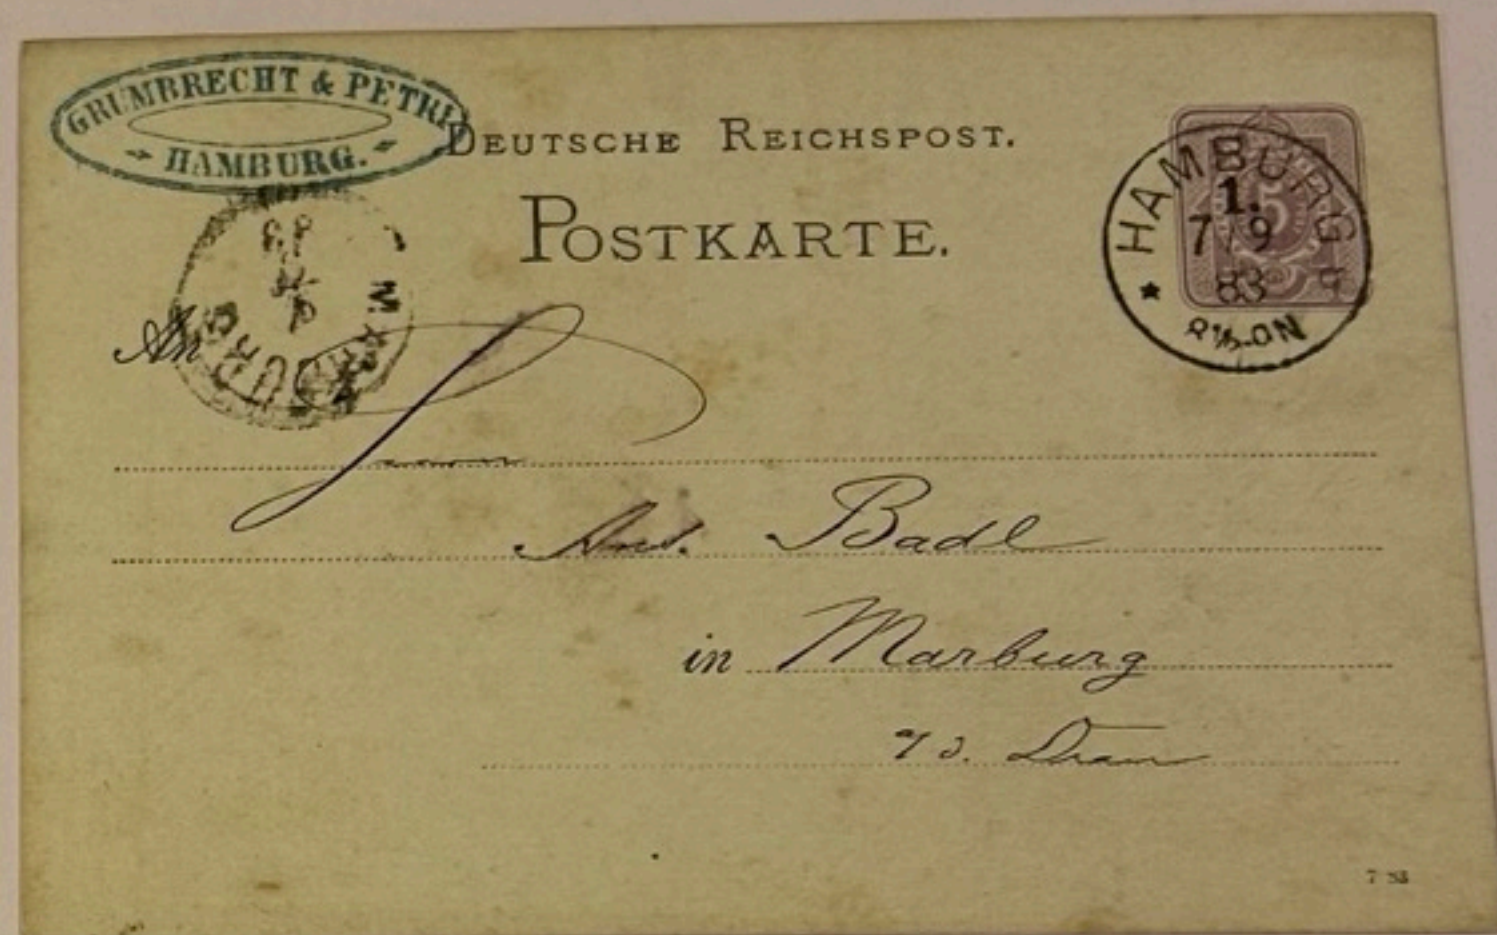 GRUMBRECHT & PETRI
HAMBURG.
DEUTSCHE REICHSPOST.
POSTKARTE.
HAMBURG
1.
7/9
83
5
MARBURG
An
Badl
in Marburg
a/d. Drau
7 83